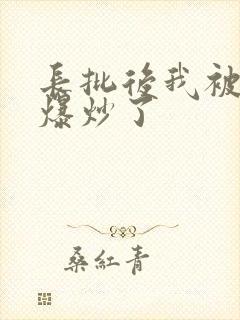 長批後我被
爆炒了
桑紅青